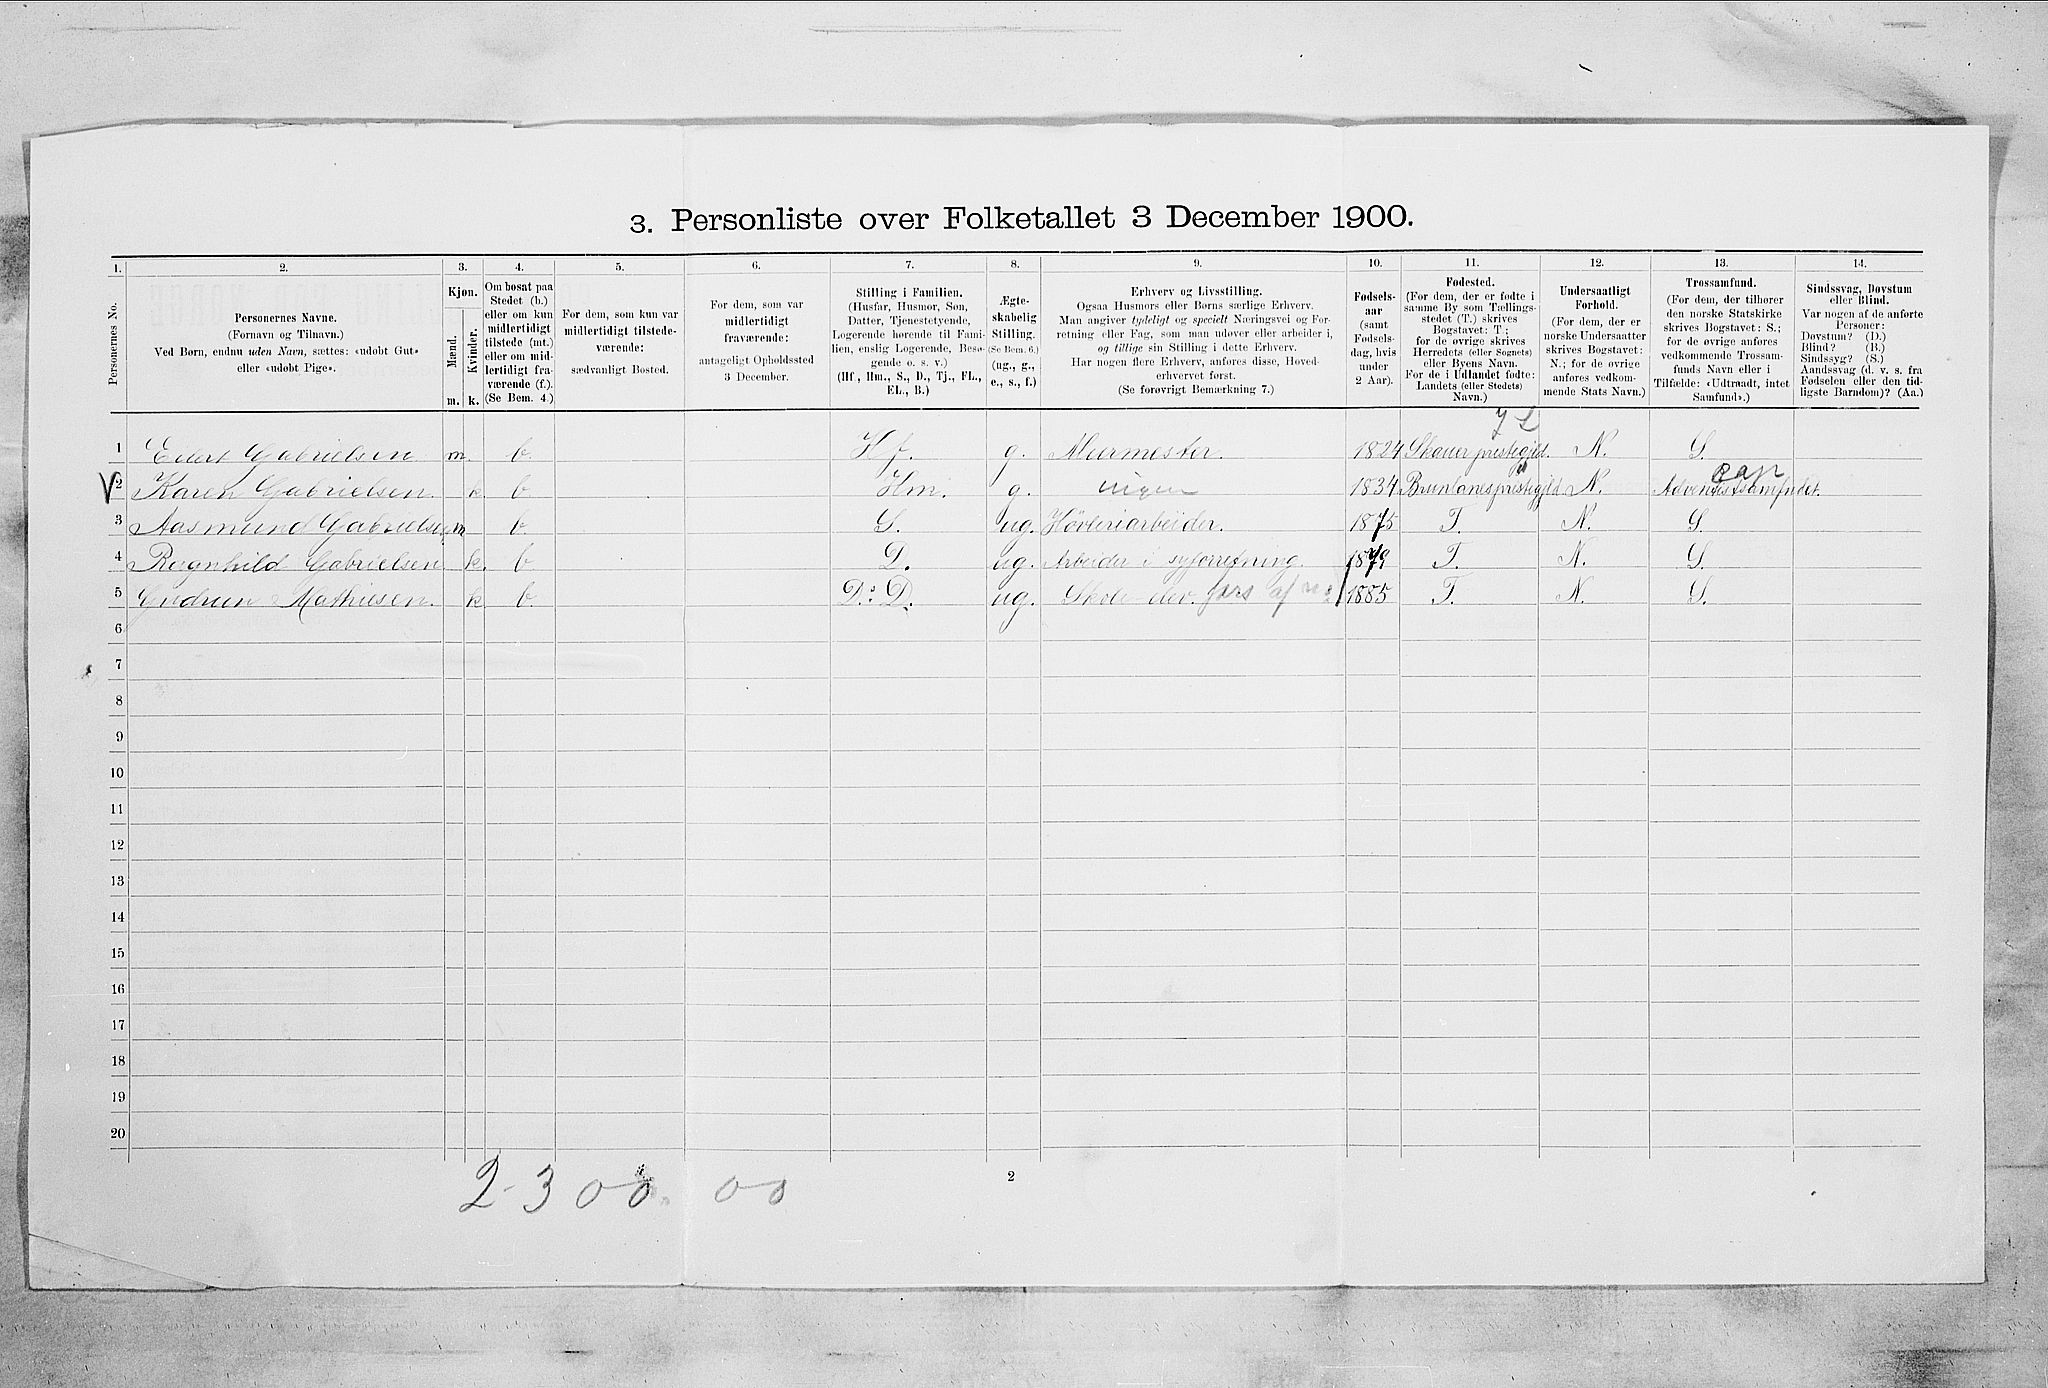 3. Personliste over Folketallet 3 December 1900.
1. 2. 3. 4. 5. 6. 7. 8. 9. 10. 11. 12. 13. 14.
Personernes No.
Personernes Navne.
(Fornavn og Tilnavn.)
Ved Børn, endnu uden Navn, sættes: «udøbt Gut»
eller «udøbt Pige».
Kjøn.
Mænd.
Kvinder.
m. k.
Om bosat paa
Stedet (b.)
eller om kun
midlertidigt
tilstede (mt.)
eller om mid-
lertidigt fra-
værende (f.).
(Se Bem. 4.)
For dem, som kun var
midlertidigt tilstede-
værende:
sædvanligt Bosted.
For dem, som var
midlertidigt
fraværende:
antageligt Opholdssted
3 December.
Stilling i Familien.
(Husfar, Husmor, Søn,
Datter, Tjenestetyende,
Logerende hørende til Fami-
lien, enslig Logerende, Besø-
gende o. s. v.)
(Hf., Hm., S., D., Tj., FL.,
EL., B.)
Ægte-
skabelig
Stilling.
(Se Bem. 6.)
(ug., g.,
e., s., f.)
Erhverv og Livsstilling.
Ogsaa Husmors eller Børns særlige Erhverv.
Man angiver tydeligt og specielt Næringsvei og For-
retning eller Fag, som man udøver eller arbeider i,
og tillige sin Stilling i dette Erhverv.
Har nogen flere Erhverv, anføres disse, Hoved-
erhvervet først.
(Se forøvrigt Bemærkning 7.)
Fødsels-
aar
(samt
Fødsels-
dag, hvis
under
2 Aar).
Fødested.
(For dem, der er fødte i
samme By som Tællings-
stedet (T.) skrives
Bogstavet: T.;
for de øvrige skrives
Herredets (eller Sognets)
eller Byens Navn.
For de i Udlandet fødte:
Landets (eller Stedets)
Navn.)
Undersaatligt
Forhold.
(For dem, der er
norske Undersaatter
skrives Bogstavet:
N.; for de øvrige
anføres vedkom-
mende Stats Navn.)
Trossamfund.
(For dem, der tilhører
den norske Statskirke
skrives Bogstavet: S.;
for de øvrige anføres
vedkommende Trossam-
funds Navn eller i
Tilfælde: «Udtraadt, intet
Samfund».)
Sindssvag, Døvstum
eller Blind.
Var nogen af de anførte
Personer:
Døvstum? (D.)
Blind? (B.)
Sindssyg? (S.)
Aandssvag (d. v. s. fra
Fødselen eller den tid-
ligste Barndom)? (Aa.)
1 Evert Gabrielsen m. b. Hf. g. Murmester. 1824 N. S.
V 2 Karen Gabrielsen. k b Hm. g. ingen 1834 Brunlanes N. Adventistsamfundet.
3 Aasmund Gabrielsen m b. S. ug. Høvleriarbeider. 1875 T. N. S
4 Ragnhild Gabrielsen k. b D. ug. Arbeider i syforretning. 1879 T. N. S.
5 Gudrun Mathiesen. k b. D.s D. ug. Skole elev. 1885 T. N. S.
6
7
8
9
10
11
12
13
14
15
16
17
18
19
20
2
2-3 00. 00